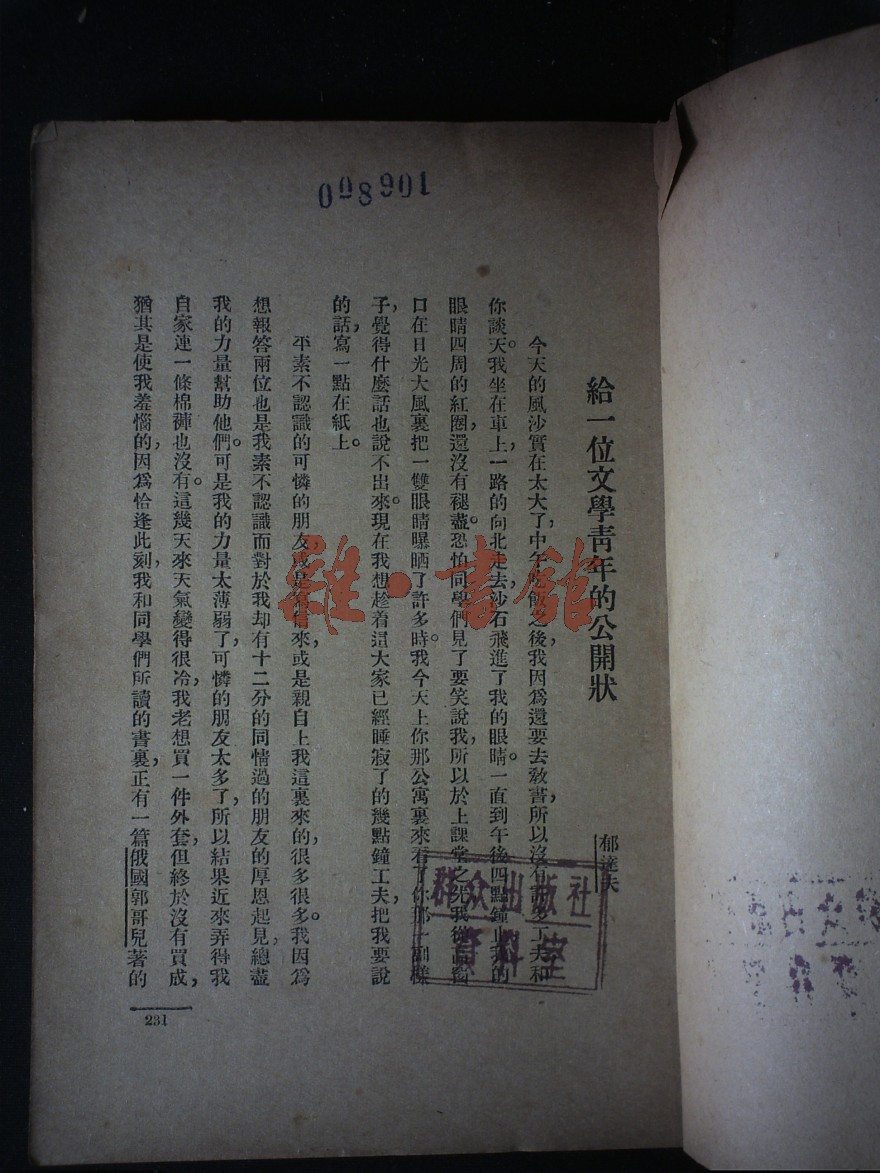 008901
給一位文學青年的公開狀
郁達夫
今天的風沙實在太大了,中午吃飯之後,我因爲還要去教書,所以沒有許多工夫和
你談天。我坐在車上,一路的向北走去,沙石飛進了我的眼睛。一直到午後四點鐘止,我的
眼睛四周的紅圈,還沒有褪盡。恐怕同學們見了要笑說我,所以於上課堂之先,我從高窗
口在日光大風裏把一雙眼睛曝晒了許多時。我今天上你那公寓裏來看了你那一副樣
子,覺得什麼話也說不出來。現在我想趁着這大家已經睡寂了的幾點鐘工夫,把我要說
的話,寫一點在紙上。
平素不認識的可憐的朋友,或是寫信來,或是親自上我這裏來的,很多很多。我因爲
想報答兩位也是我素不認識而對於我却有十二分的同情過的朋友的厚恩起見,總盡
我的力量幫助他們。可是我的力量太薄弱了,可憐的朋友太多了,所以結果近來弄得我
自家連一條棉褲也沒有。這幾天來天氣變得很冷,我老想買一件外套,但終於沒有買成,
猶其是使我羞惱的,因爲恰逢此刻,我和同學們所讀的書裏,正有一篇俄國郭哥兒著的
231
雜·書館
群众出版社
資料室